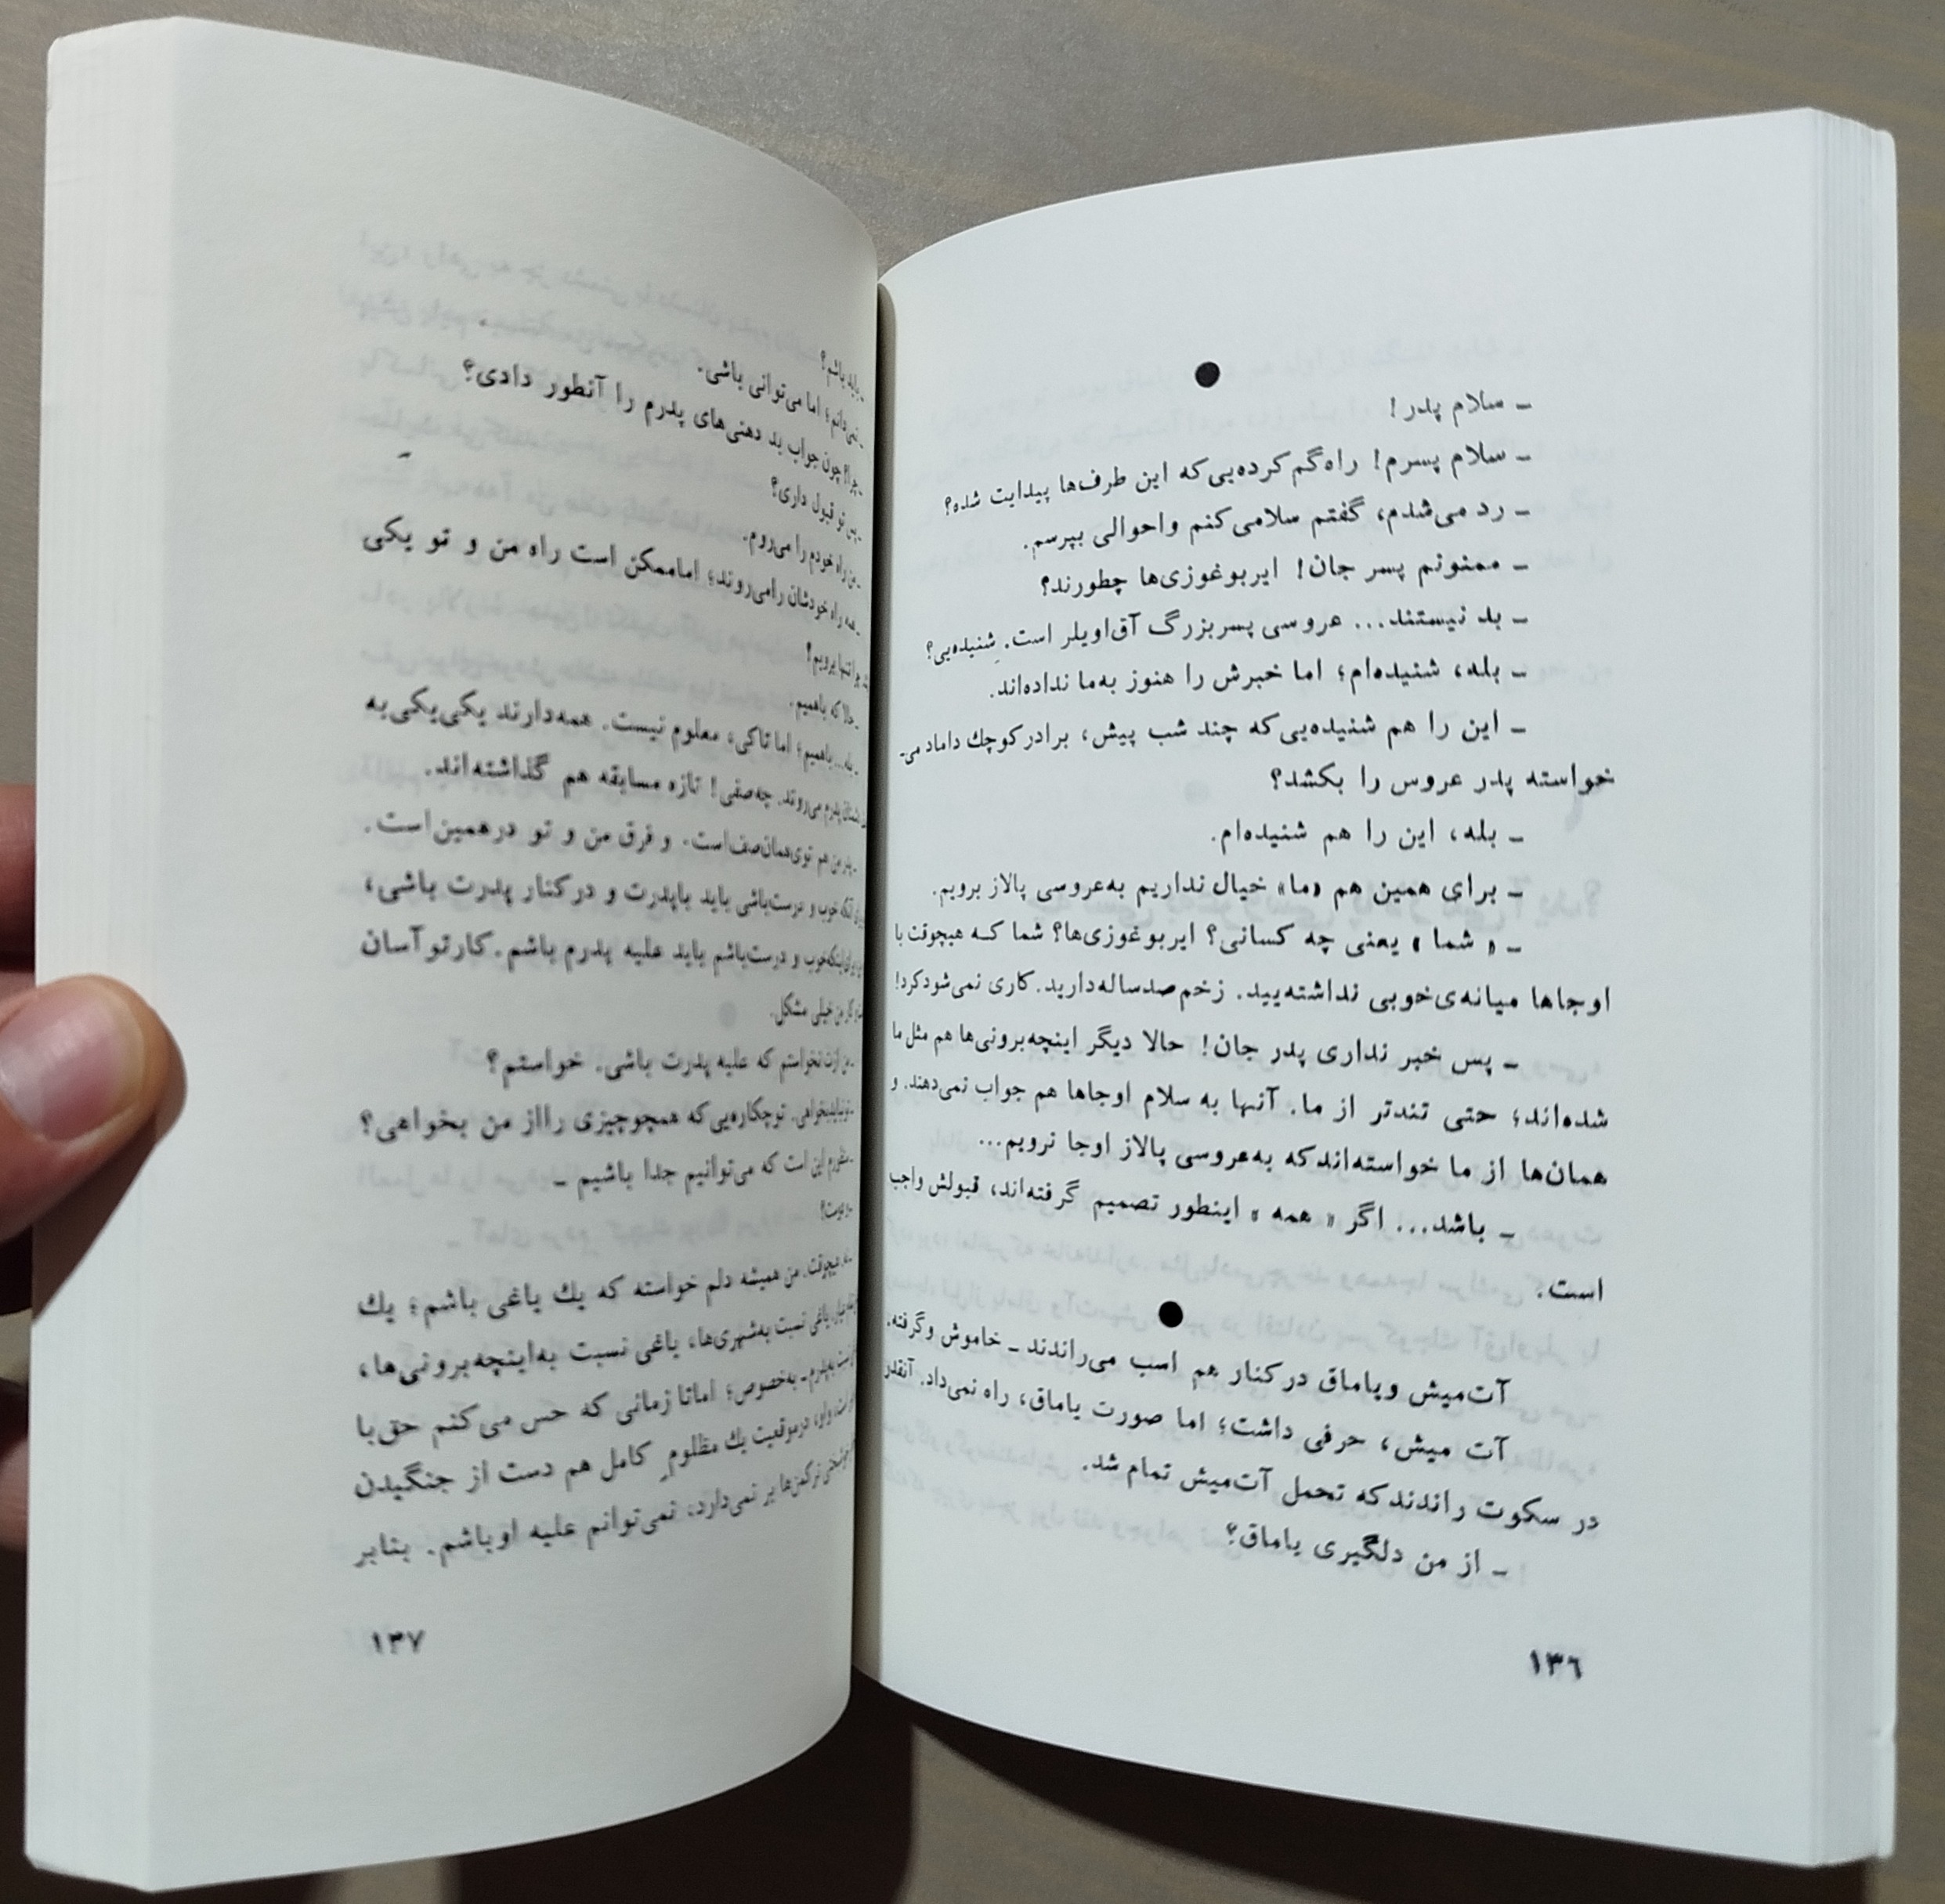 ●
ـ سلام پدر!
ـ سلام پسرم! راه‌گم کرده‌یی‌که این طرف‌ها پیدایت شده؟
ـ رد می‌شدم، گفتم سلامی‌کنم واحوالی بپرسم.
ـ ممنونم پسر جان! ایری‌بوغوزی‌ها چطورند؟
ـ بد نیستند... عروسی پسربزرگ آق‌اویلر است. شنیده‌یی؟
ـ بله، شنیده‌ام؛ اما خبرش را هنوز به‌ما نداده‌اند.
ـ این را هم شنیده‌یی‌که چند شب پیش، برادرکوچك داماد می‌ـ
خواسته پدر عروس را بکشد؟
ـ بله، این را هم شنیده‌ام.
ـ برای همین هم «ما» خیال نداریم به‌عروسی پالاز برویم.
ـ « شما » یعنی چه کسانی؟ ایری‌بوغوزی‌ها؟ شما کـه هیچوقت با
اوجاها میانه‌ی‌خوبی نداشته‌یید. زخم‌صدساله‌دارید.کاری نمی‌شودکرد!
ـ پس خبر نداری پدر جان! حالا دیگر اینچه‌برونی‌ها هم مثل ما
شده‌اند؛ حتی تندتر از ما. آنها به سلام اوجاها هم جواب نمی‌دهند. و
همان‌ها از ما خواسته‌اندکه به‌عروسی پالاز اوجا نرویم...
ـ باشد... اگر « همه » اینطور تصمیم گرفته‌اند، قبولش واجب
است.
●
آت‌میش ویاماق درکنار هم اسب می‌راندند ـ خاموش وگرفته.
آت میش، حرفی داشت؛ اما صورت یاماق، راه نمی‌داد. آنقدر
در سکوت راندندکه تحمل آت‌میش تمام شد.
ـ از من دلگیری یاماق؟
١٣٦
ـ باید باشم؟
ـ نمی‌دانم؛ اما می‌توانی باشی.
ـ چرا؟ چون جواب بد دهنی‌های پدرم را آنطور دادی؟
ـ پس تو قبول داری؟
ـ من راه خودم را می‌روم.
ـ همه راه خودشان رامی‌روند؛ اماممکن است راه من و تو یکی
چرا تنها برویم؟
ـ حالا که باهمیم.
ـ بله... باهمیم؛ اما تاکی، معلوم نیست. همه‌دارند یکی‌یکی‌به
پدرم می‌روند. چه‌صفی! تازه مسابقه هم گذاشته‌اند.
ـ پدر من هم توی‌همان‌صف‌است. و فرق من و تو درهمین‌است.
خوب و درست‌باشی باید باپدرت و درکنار پدرت باشی،
خوب و درست‌باشم باید علیه پدرم باشم.کارتوآسان
کار من خیلی مشکل.
ـ من ازت نخواستم که علیه پدرت باشی. خواستم؟
ـ تونبایدبخواهی. توچکاره‌یی‌که همچوچیزی رااز من بخواهی؟
ـ منظورم این است که می‌توانیم جدا باشیم ـ
ـ نه. هیچوقت. من همیشه دلم خواسته که یك یاغی باشم؛ یك
یاغی نسبت به‌شهری‌ها، یاغی نسبت به‌اینچه‌برونی‌ها،
نسبت به‌پدرم ـ به‌خصوص؛ اماتا زمانی که حس می‌کنم حق‌با
اوست، واو، درموقعیت یك مظلومِ کامل هم دست از جنگیدن
خوشبختی ترکمن‌ها بر نمی‌دارد، نمی‌توانم علیه اوباشم. بنابر
١٣٧